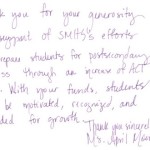 k you for your generosity
support of SMHS's efforts
epare students for postsecondary
ss through an increase of ACT
. With your funds, students
be motivated, recognized, and
ded for growth.
Thank you sincerely
Ms. April